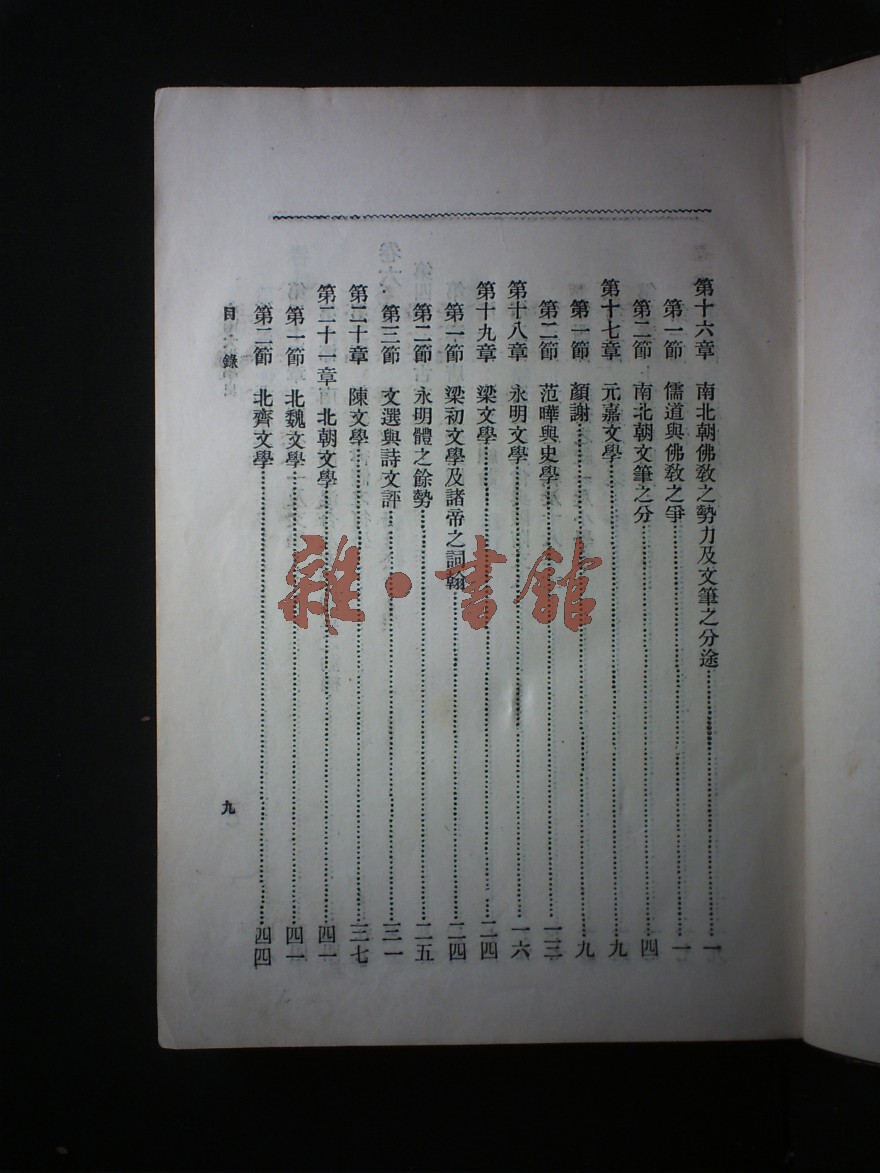 第十六章　南北朝佛教之勢力及文筆之分途……一
第一節　儒道與佛教之爭……一
第二節　南北朝文筆之分……四
第十七章　元嘉文學……九
第一節　顏謝……九
第二節　范曄與史學……一三
第十八章　永明文學……一六
第十九章　梁文學……二四
第一節　梁初文學及諸帝之詞翰……二四
第二節　永明體之餘勢……二五
第三節　文選與詩文評……三一
第二十章　陳文學……三七
第二十一章　北朝文學……四一
第一節　北魏文學……四一
第二節　北齊文學……四四
目錄
九
雜·書館